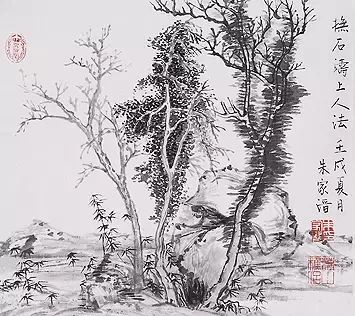 橅石濤上人法壬戌夏月
朱家溍